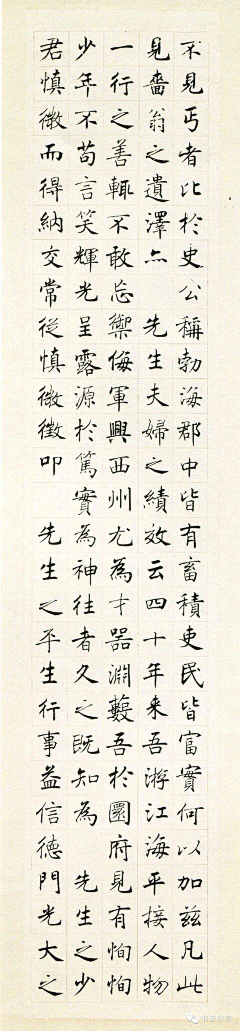 不見丐者比於史公稱勃海郡中皆有畜積吏民皆富實何以加茲凡此
見嗇翁之遺澤亦 先生夫婦之績效云四十年来吾游江海平接人物
一行之善輒不敢忘禦侮軍興西州尤為才器淵藪吾於園府見有恂恂
少年不苟言笑輝光呈露源於篤實為神往者久之既知為 先生之少
君慎微而得納交常從慎微徵叩 先生之平生行事益信德門光大之